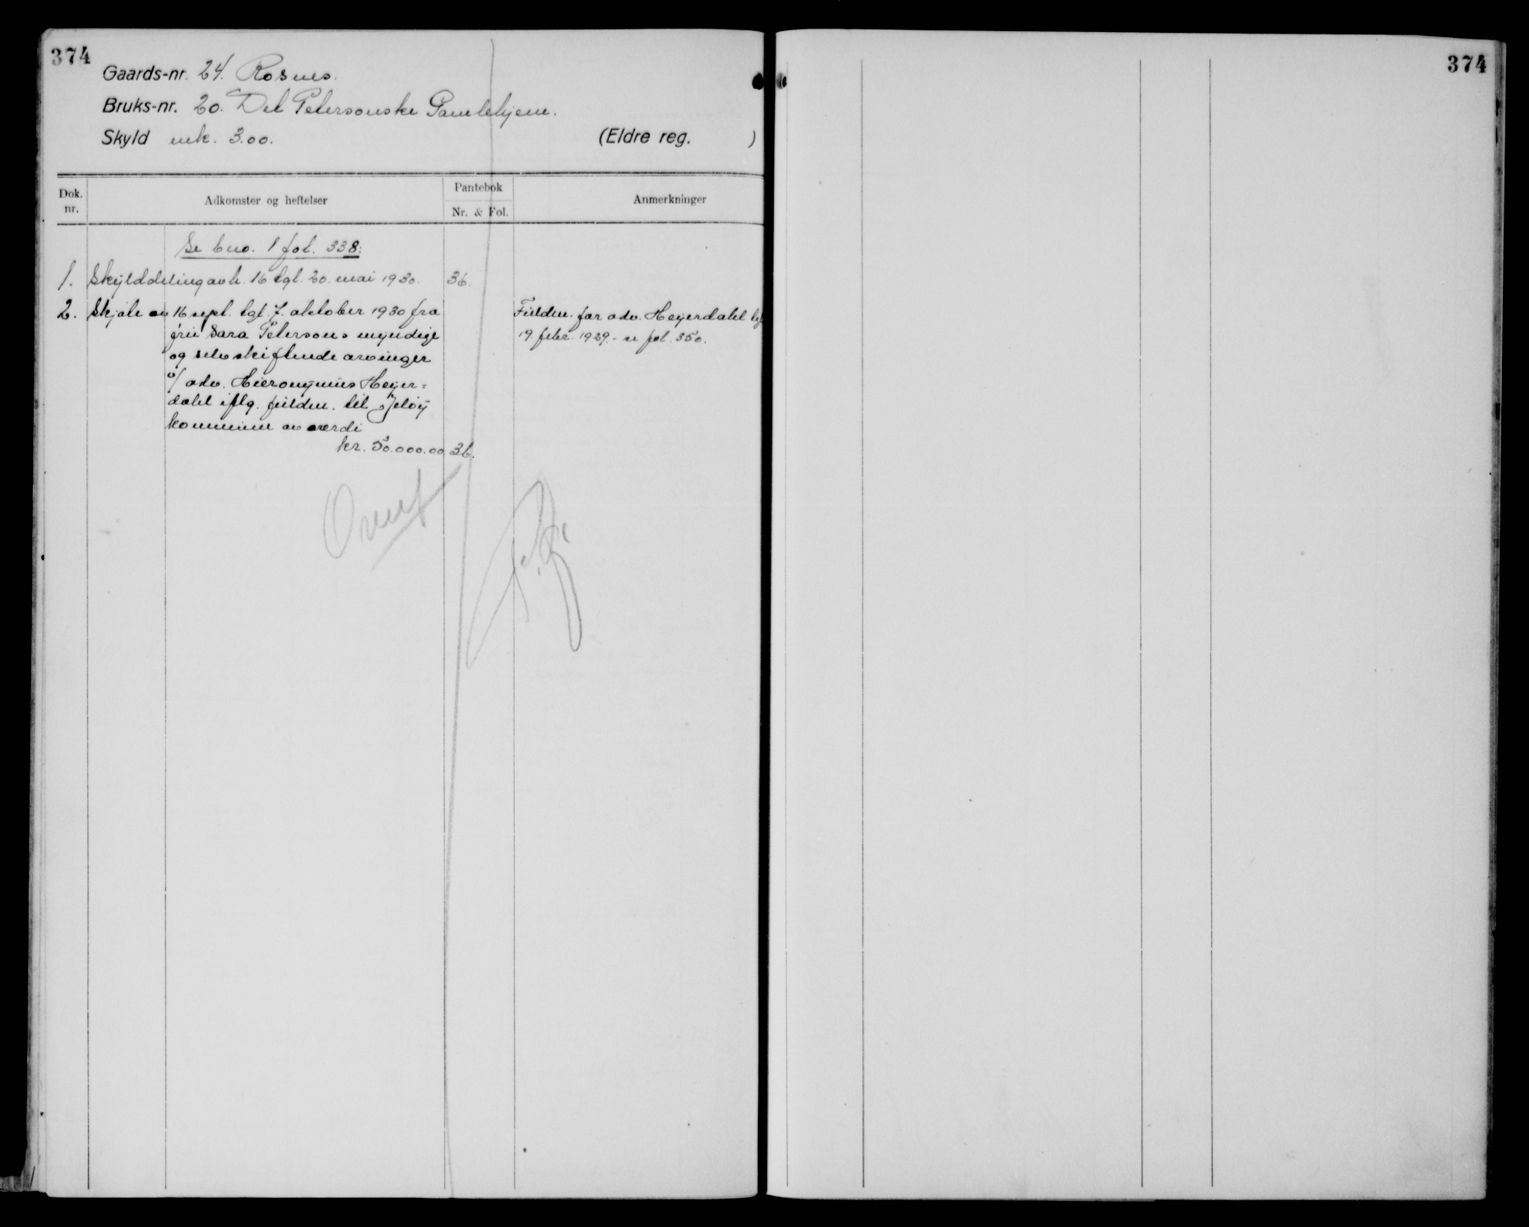 374
Gaards-nr. 24. Rosnes.
Bruks-nr. 20. Det Petersonske Gamlehjem.
Skyld mk. 3.00. (Eldre reg. )
Dok. nr.
Adkomster og heftelser
Pantebok
Nr. & Fol.
Anmerkninger
Se bno. 1 fol. 338.
1. Skylddeling avh. 16 tgl. 20. mai 1930. 36.
2. Skjøte av 16 sept. tgl. 7. oktober 1930 fra
fru Sara Petersons myndige
og selvskiftende arvinger
v/ adv. Hieronymus Heyer=
dahl iflg. fuldm. til Jeløy
kommune av verdi
kr. 50.000.00 36.
Fuldm. for adv. Heyerdahl tgl
19 febr. 1929 - se fol. 350.
Overf
374